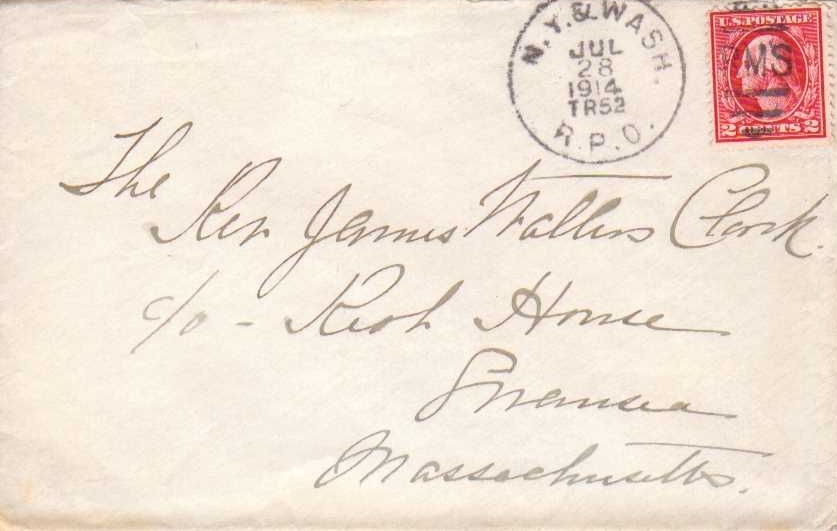 N.Y. & WASH.
JUL
28
1914
TR52
R.P.O.
U.S. POSTAGE
MS
2 CENTS 2
The
Rev James Walters Clark.
c/o - House
Swansea
Massachusetts.